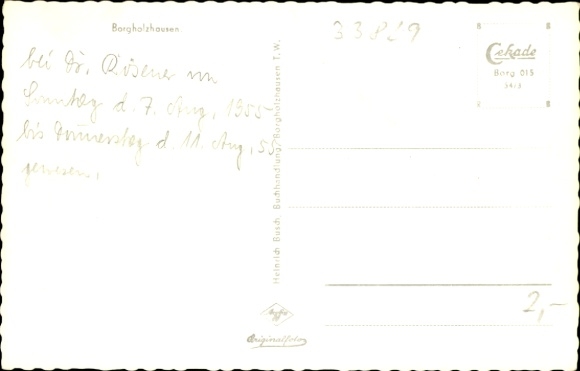 Borgholzhausen
bei Dr. Rösener von
Sonntag d. 7. Aug, 1955
bis Donnerstag d. 11. Aug, 55
gewesen.
Heinrich Busch, Buchhandlung, Borgholzhausen T.W.
33829
Cekade
Borg 015
54/3
2,-
Agfa
Originalfoto